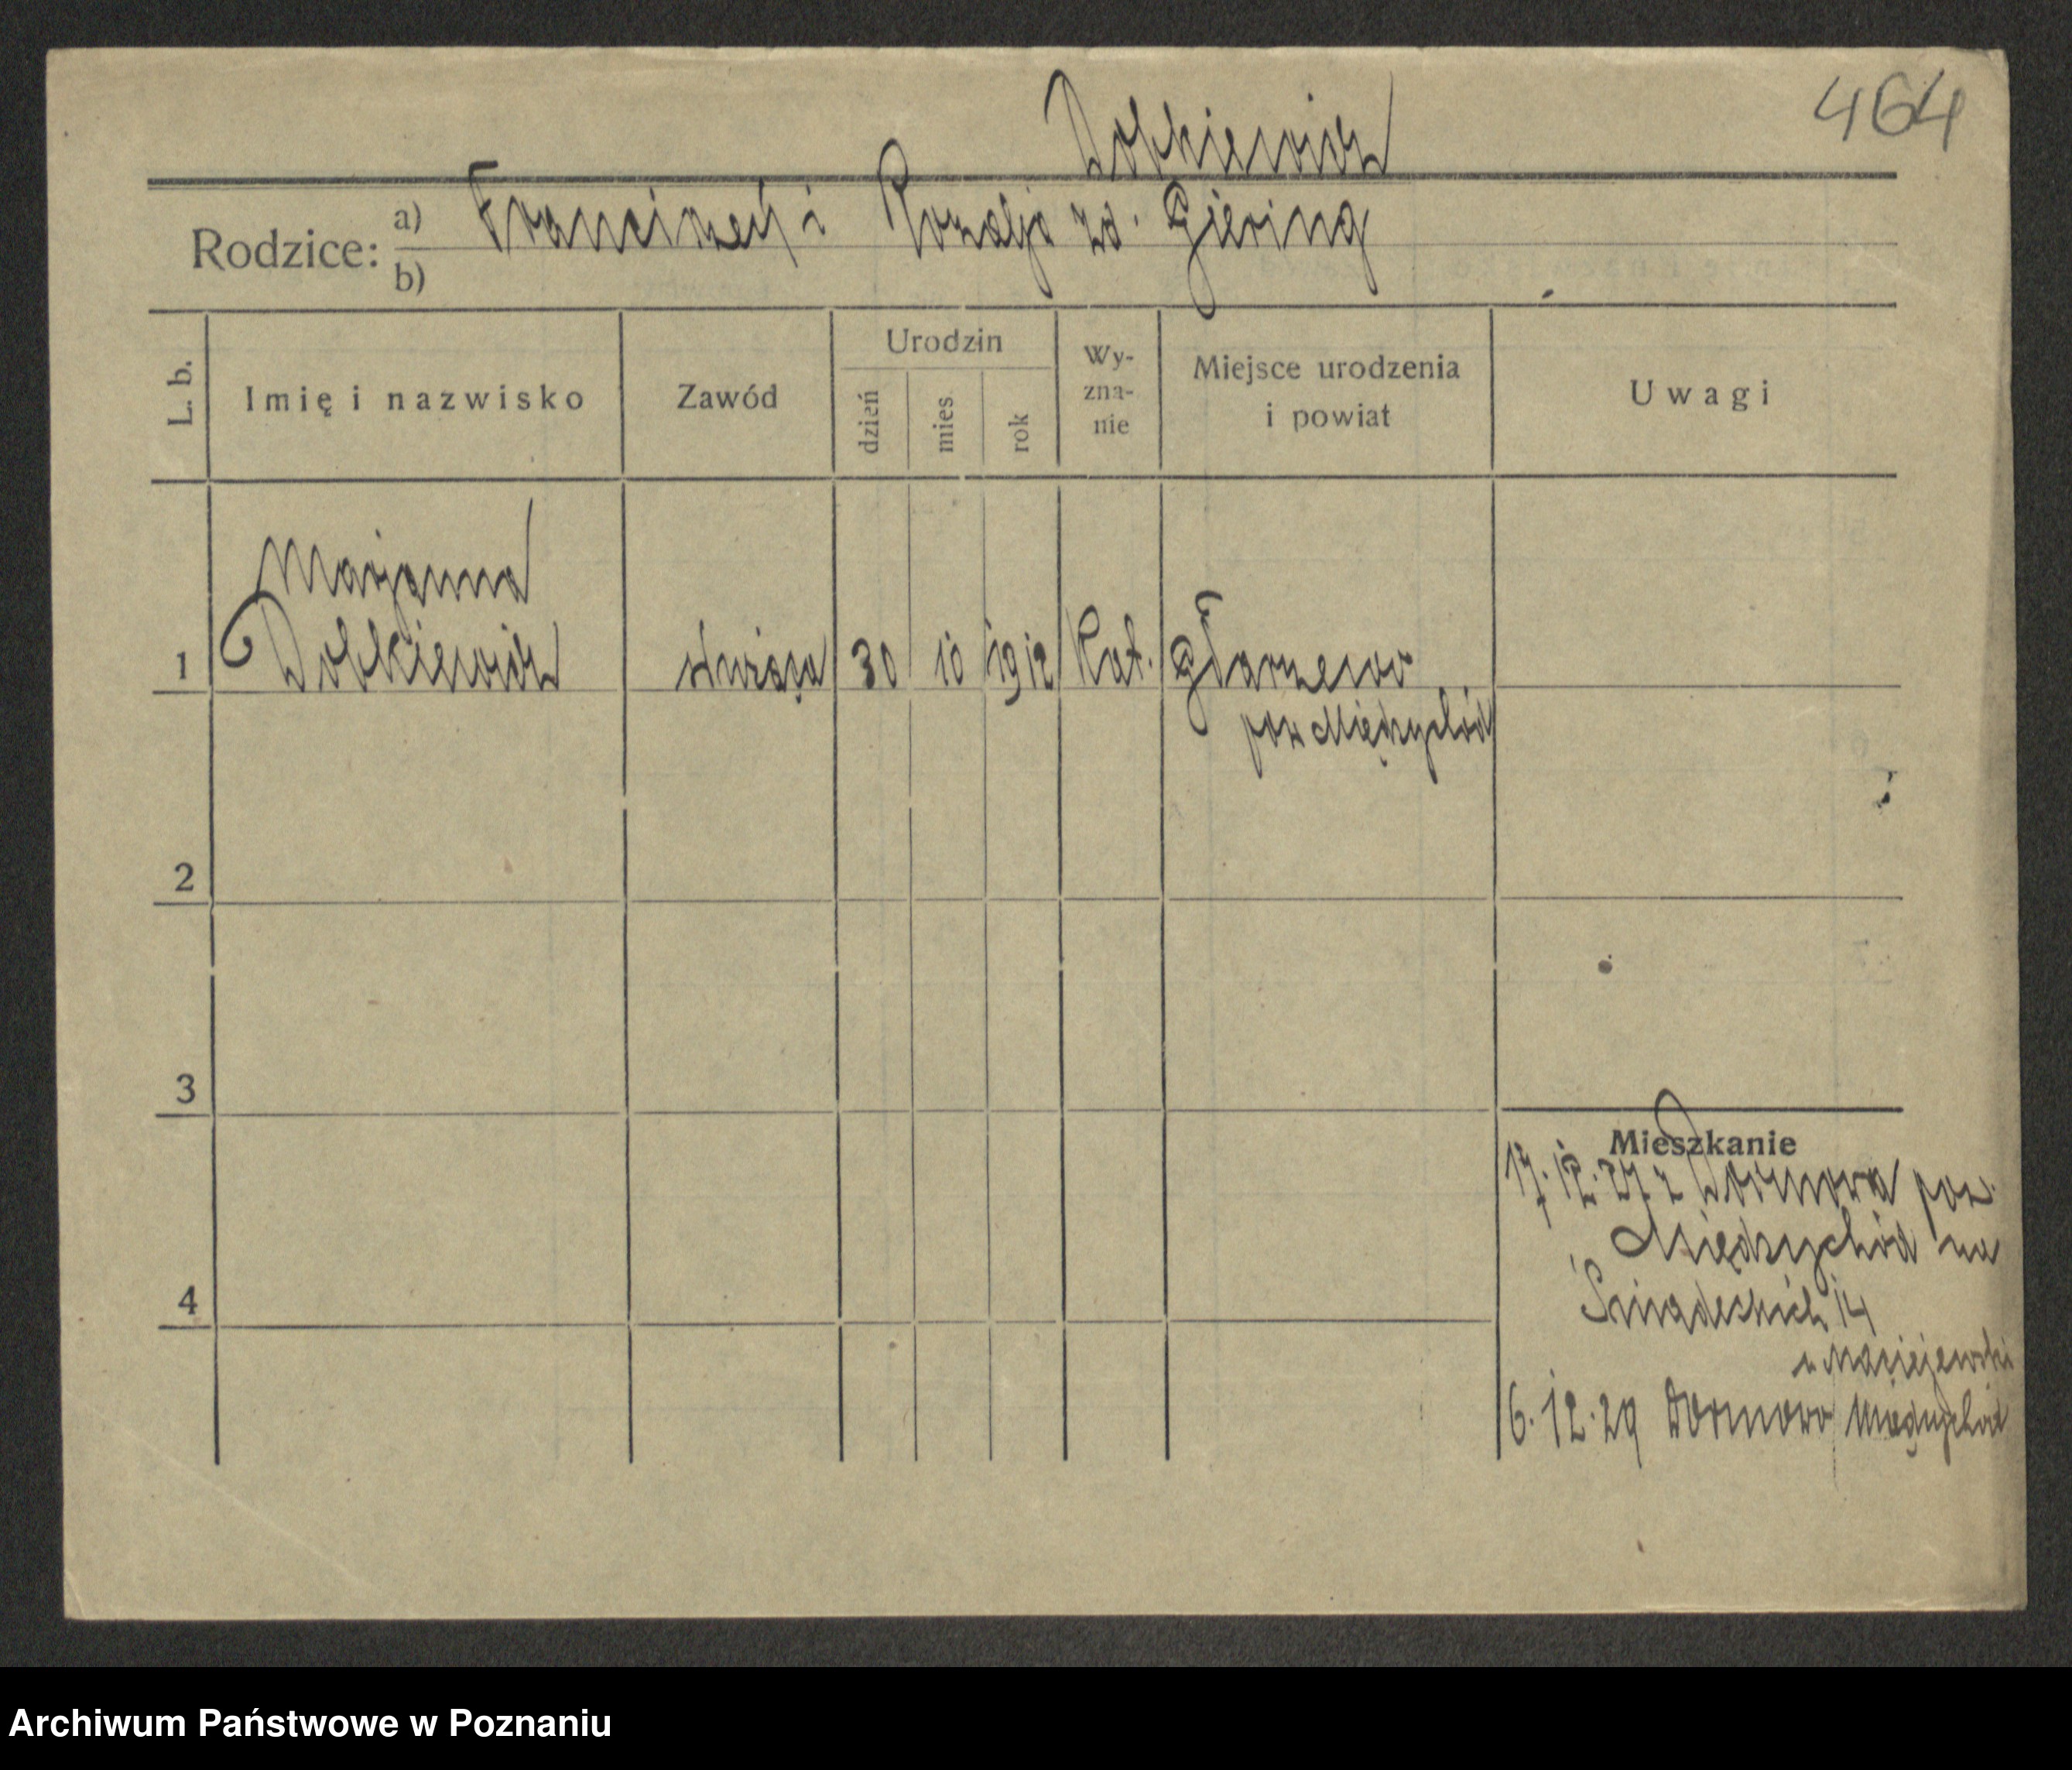 464
Dobkiewicz
Rodzice: a) Franciszek i Rozalja zd. Giering
b)
L. b. Imię i nazwisko Zawód Urodzin dzień mies. rok Wy-zna-nie Miejsce urodzenia i powiat Uwagi
Marjanna
1 Dobkiewicz służąca 30 10 1912 Kat.
pow Międzychód
2
3
Mieszkanie
17.12.27 z Dormowa pow.
Międzychód na
4 Śniadeckich 14
u Maciejewski
6.12.29 Dormowo Międzychód
Archiwum Państwowe w Poznaniu